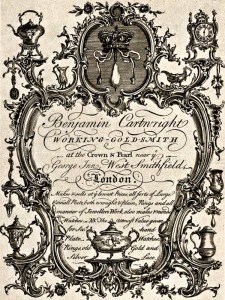 Benjamin Cartwright
WORKING-GOLD-SMITH
at the Crown & Pearl near ye
George Inn West Smithfield,
London.
Makes & sells at ye lowest Prices, all sorts of Large
& Small Plate, both wrought & plain, Rings and all
manner of Jewellers Work, also makes & mends
Watches. NB. The utmost Value given
for Second hand
Plate, Watches,
Rings, old Gold and
Silver Lace.